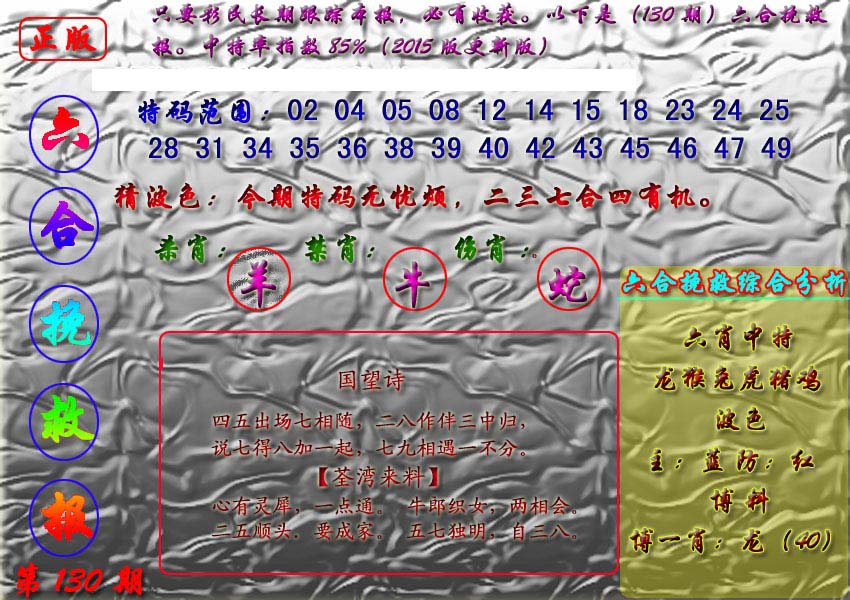 正版
只要彩民长期跟踪本报，必有收获。以下是（130期）六合挽救
报。中特率指数85%（2015版更新版）
六合挽救报
第130期
特码范围：02 04 05 08 12 14 15 18 23 24 25
28 31 34 35 36 38 39 40 42 43 45 46 47 49
猜波色：今期特码无忧烦，二三七合四有机。
杀肖：羊 禁肖：牛 伤肖：蛇
国望诗
四五出场七相随，二八作伴三中归，
说七得八加一起，七九相遇一不分。
【荃湾来料】
心有灵犀，一点通。 牛郎织女，两相会。
二五顺头．要成家。 五七独明，自三八。
六合挽救综合分析
六肖中特
龙猴兔虎猪鸡
波色
主：蓝防：红
博料
博一肖：龙（40）